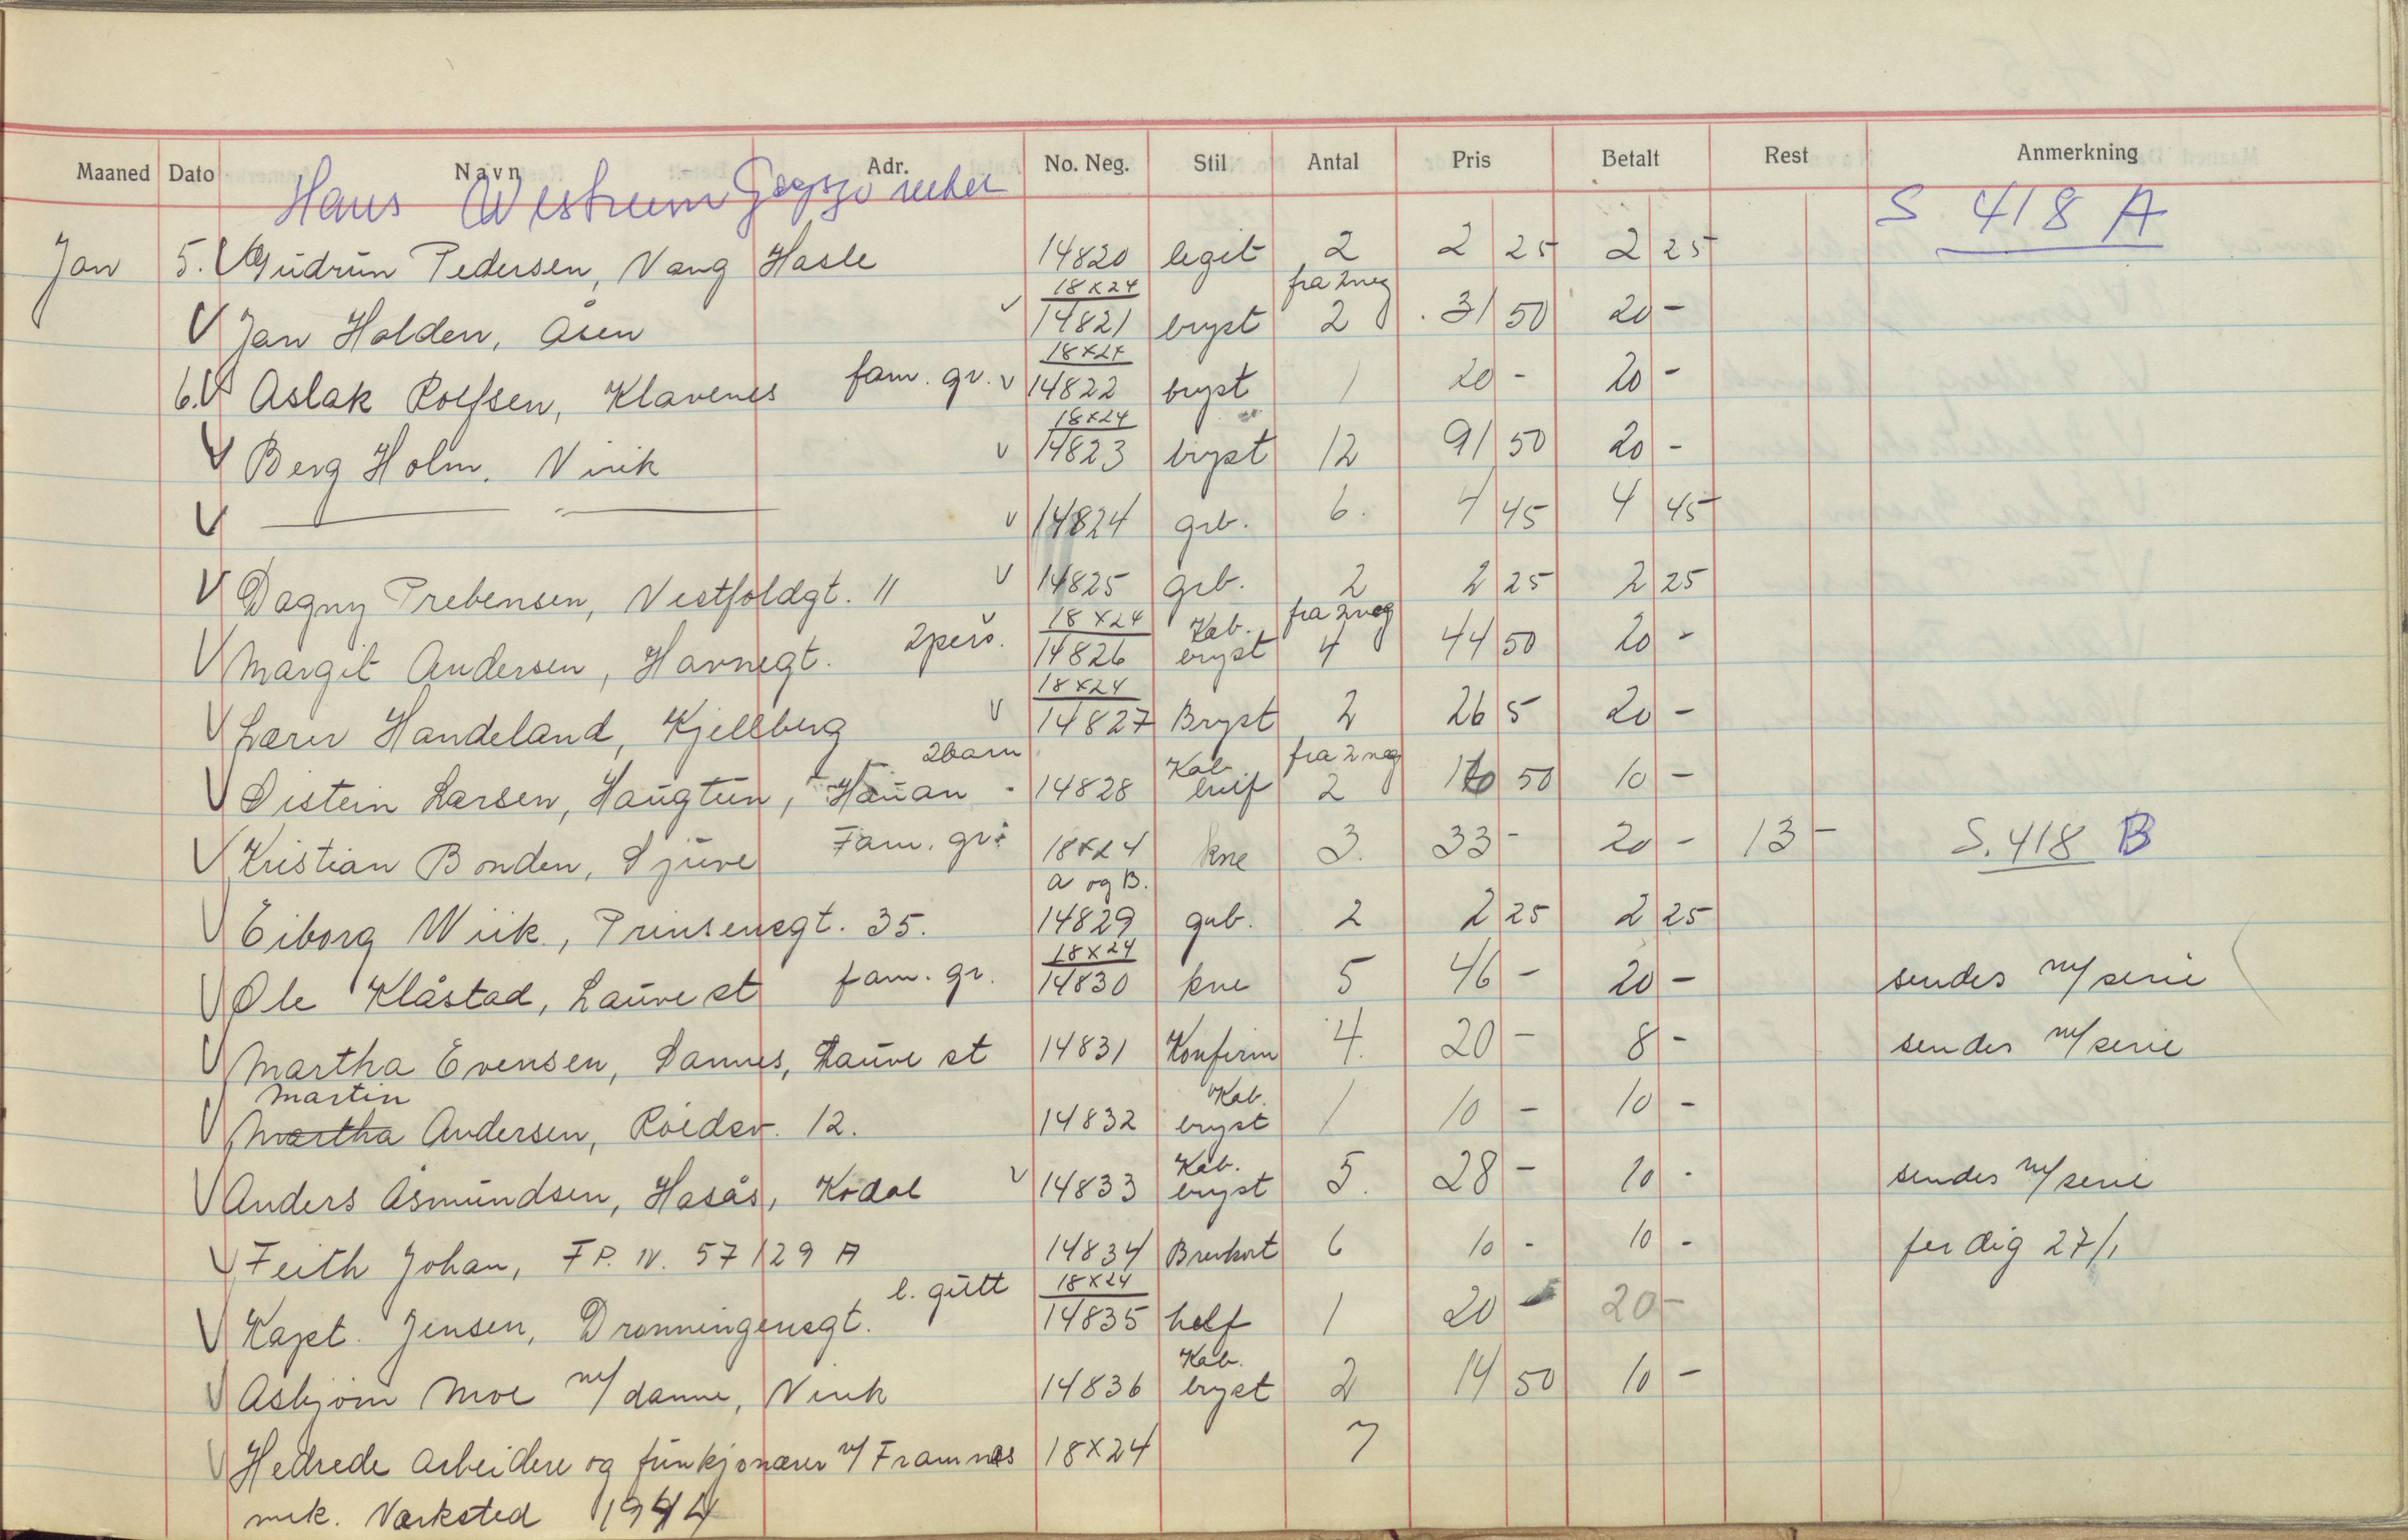 Maaned Dato Navn Adr. No. Neg. Stil Antal Pris Betalt Rest Anmerkning
Hans S 418 A
Jan 5. V Gudrun Pedersen, Vang Hasle 14820 legit 2 2 25 2 25
18x24 fra 2 neg
V Jan Holden, Åsen v 14821 bryst 2 31 50 20 -
18x24
6. V Aslak Rolfsen, Klavenes fam. gr. v 14822 bryst 1 20 - 20 -
18x24
V Berg Holm, Virik v 14823 bryst 12 91 50 20 -
V — — v 14824 grb. 6. 4 45 4 45
V Dagny Prebensen, Vestfoldgt. 11 v 14825 grb. 2 2 25 2 25
18x24 Kab. fra 2 neg
V Margit Andersen, Havnegt. 2 pers. 14826 bryst 4 44 50 20 -
18x24
V Lærer Handeland, Kjellberg v 14827 Bryst 2 26 5 20 -
2 barn Kab. fra 2 neg
V Øistein Larsen, Haugtun, Hauan 14828 2 50 10 -
V Kristian Bonden, Sjuve Fam. gr. 18x24 kne 3. 33 - 20 - 13 - S. 418 B
a og B.
V Eiborg Wiik, Prinsensgt. 35. 14829 grb. 2 2 25 2 25
18x24
V Ole Klåstad, Lauve st fam. gr. 14830 kne 5 46 - 20 - sendes m/serie
V Martha Evensen, Sannes, Lauve st 14831 Konfirm 4. 20 - 8 - sendes m/serie
Martin Kab.
V Martha Andersen, 12. 14832 bryst 1 10 - 10 -
Kab.
V Anders Åsmundsen, Hasås, Kodal v 14833 bryst 5. 28 - 10 - sendes m/serie
V Feith Johan, F.P. N. 57129 A 14834 Brevkort 6 10 - 10 - ferdig 27/1
l. gutt 18x24
V Kapt. Jensen, Dronningensgt. 14835 helf 1 20 - 20 -
Kab.
V Asbjørn Moe m/ damme, Virik 14836 bryst 2 14 50 10 -
V Hedrede arbeidere og funkjonærer v/ Framnæs 18x24 7
mek. Værksted 1944